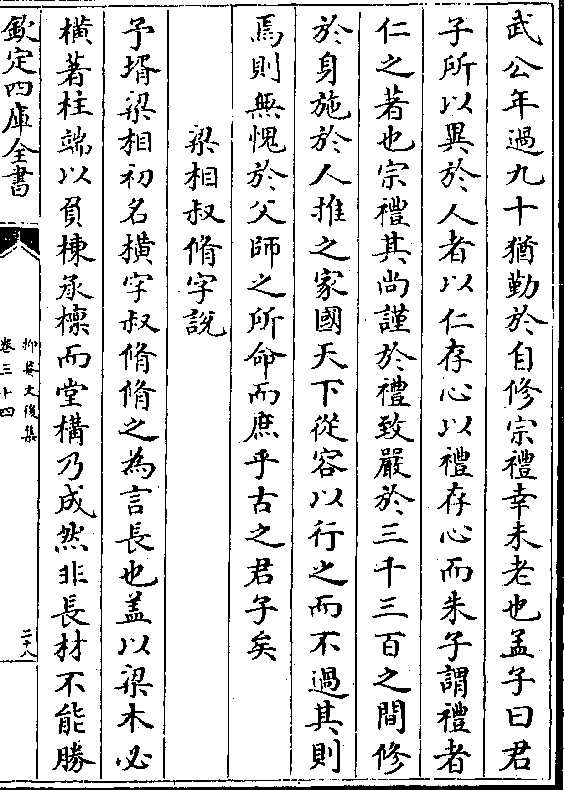 武公年過九十猶勤於自修宗禮幸未老也孟子曰君
子所以異於人者以仁存心以禮存心而朱子謂禮者
仁之著也宗禮其尚謹於禮致嚴於三千三百之間修
於身施於人推之家國天下從容以行之而不過其則
焉則無愧於父師之所命而庶乎古之君子矣
梁相叔脩字說
予壻梁相初名横字叔脩脩之為言長也盖以梁木必
横著柱端以負棟承檩而堂構乃成然非長材不能勝
欽定四庫全書
抑菴文後集
卷三十四
二十八